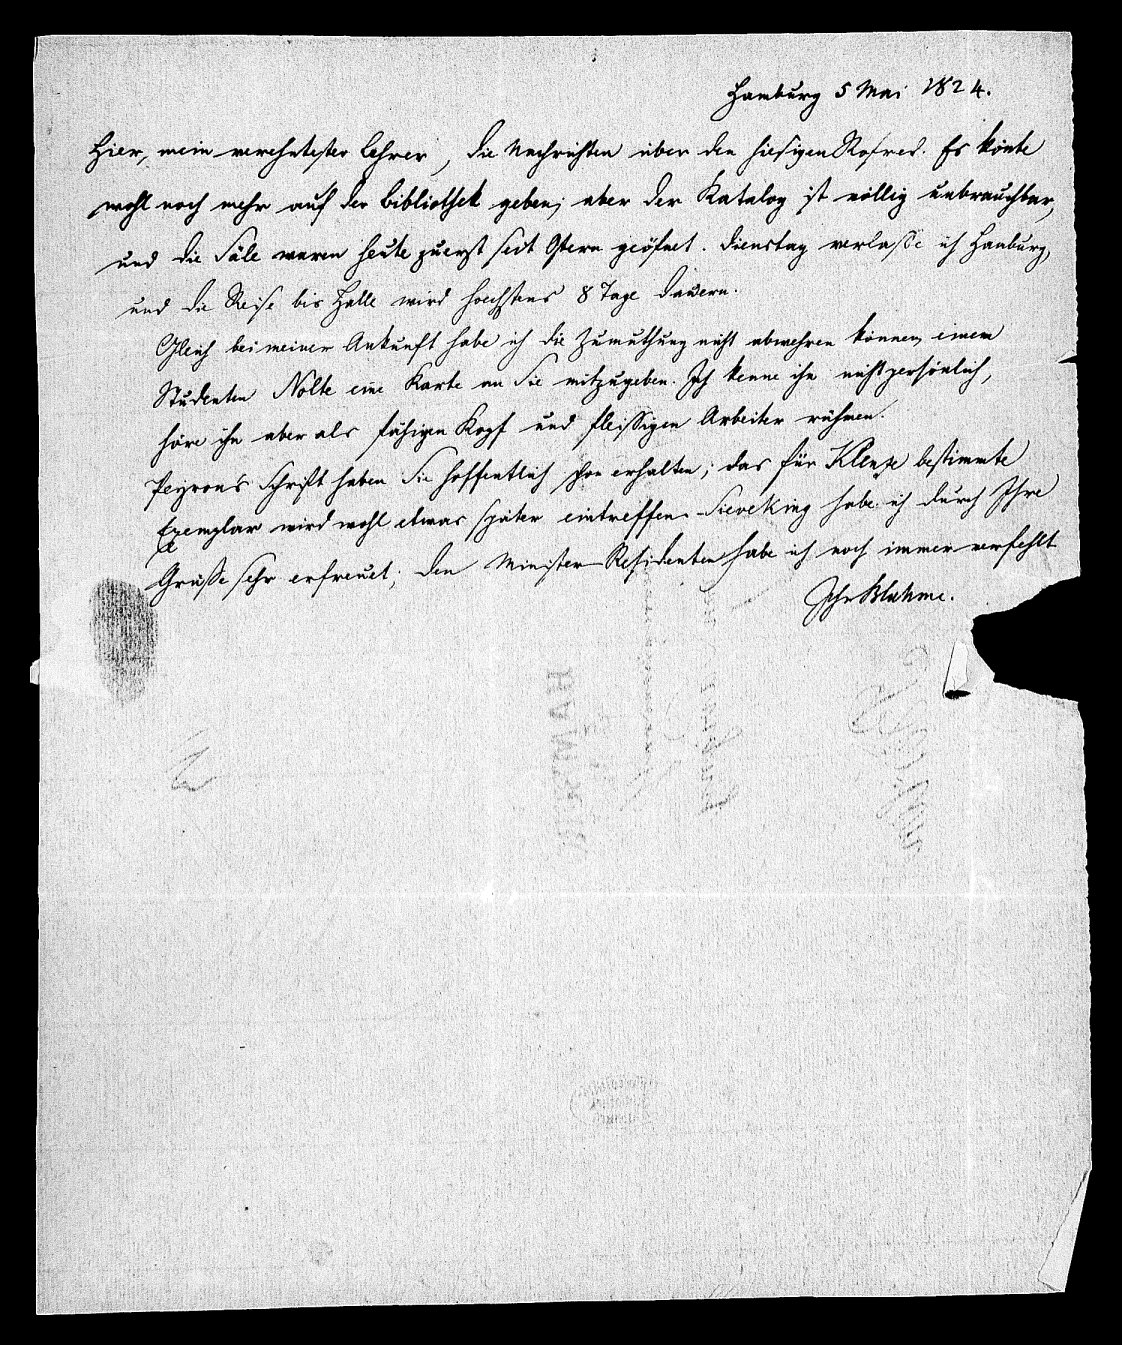 Hamburg 5 Mai 1824.
Hier, mein verehrtester Lehrer, die Nachrichten über den hiesigen Rofred. Es könte
wohl noch mehr auf der Bibliothek geben; aber der Katalog ist völlig unbrauchbar,
und die Säle waren heute zuerst seit Ostern geöfnet. Dienstag verlasse ich Hamburg,
und die Reise bis Halle wird hoechstens 8 Tage dauern.
Gleich bei meiner Ankunft habe ich die Zumuthung nicht abwehren können, einem
Studenten Nolte eine Karte an Sie mitzugeben. Ich kenne ihn nicht persönlich,
höre ihn aber als fähigen Kopf und fleissigen Arbeiter rühmen.
Peyrons Schrift haben Sie hoffentlich schon erhalten; das für Klenze bestimmte
Exemplar wird wohl etwas später eintreffen. Sieveking habe ich durch Ihre
Grüße sehr erfreuet; den Minister-Residenten habe ich noch immer verfehlt
Ihr Bluhme.
HAMBURG